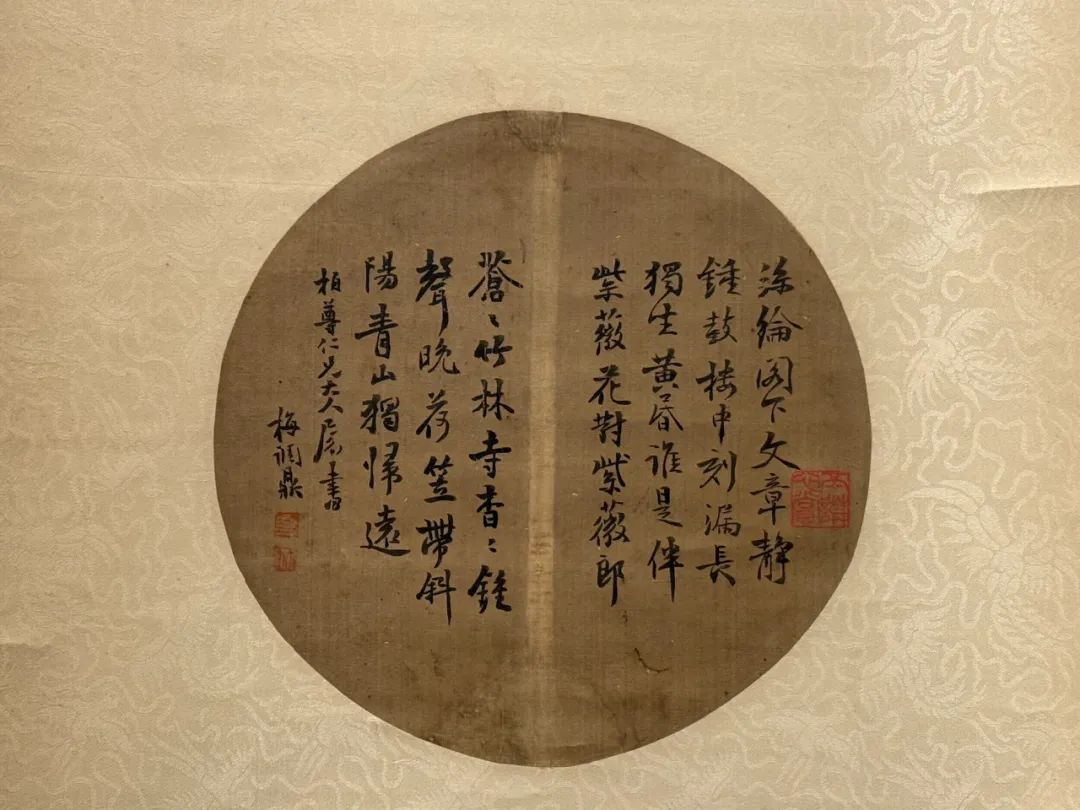 絲綸閣下文章靜
鍾鼓樓中刻漏長
獨坐黃昏誰是伴
紫薇花對紫薇郎
蒼〻竹林寺杳〻鍾
聲晚荷笠帶斜
陽青山獨歸遠
柏尊仁兄大人屬書
梅調鼎